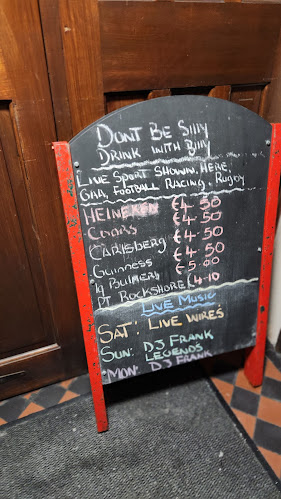 DONT BE SILLY
DRINK WITH BILLY
LIVE SPORT SHOWN HERE,
GAA, FOOTBALL RACING, RUGBY
HEINEKEN €4.50
COORS €4.50
CARLSBERG €4.50
GUINNESS €4.50
BULMERS €5.00
PT ROCKSHORE €4.10
LIVE MUSIC
SAT: LIVE WIRES
SUN: DJ FRANK
LEGENDS
MON: DJ FRANK